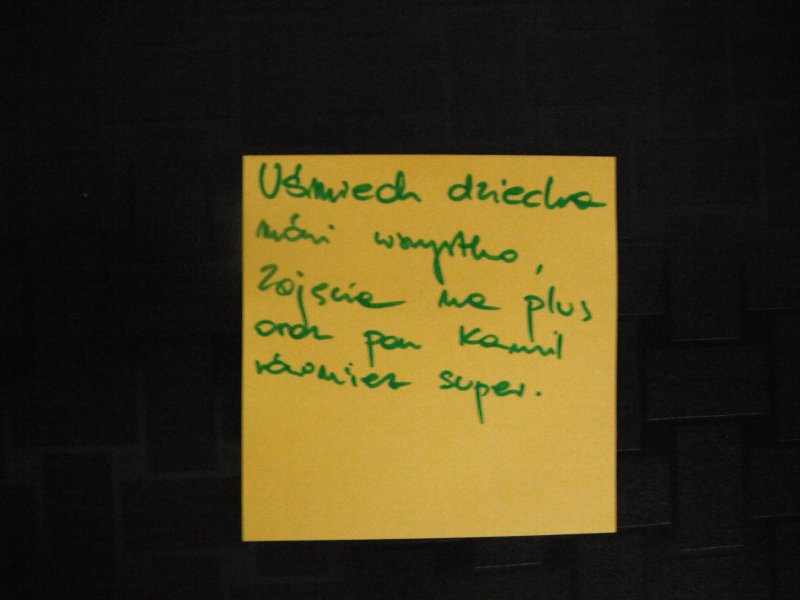 Uśmiech dziecka
mówi wszystko,
Zajęcia na plus
oraz pan Kamil
również super.